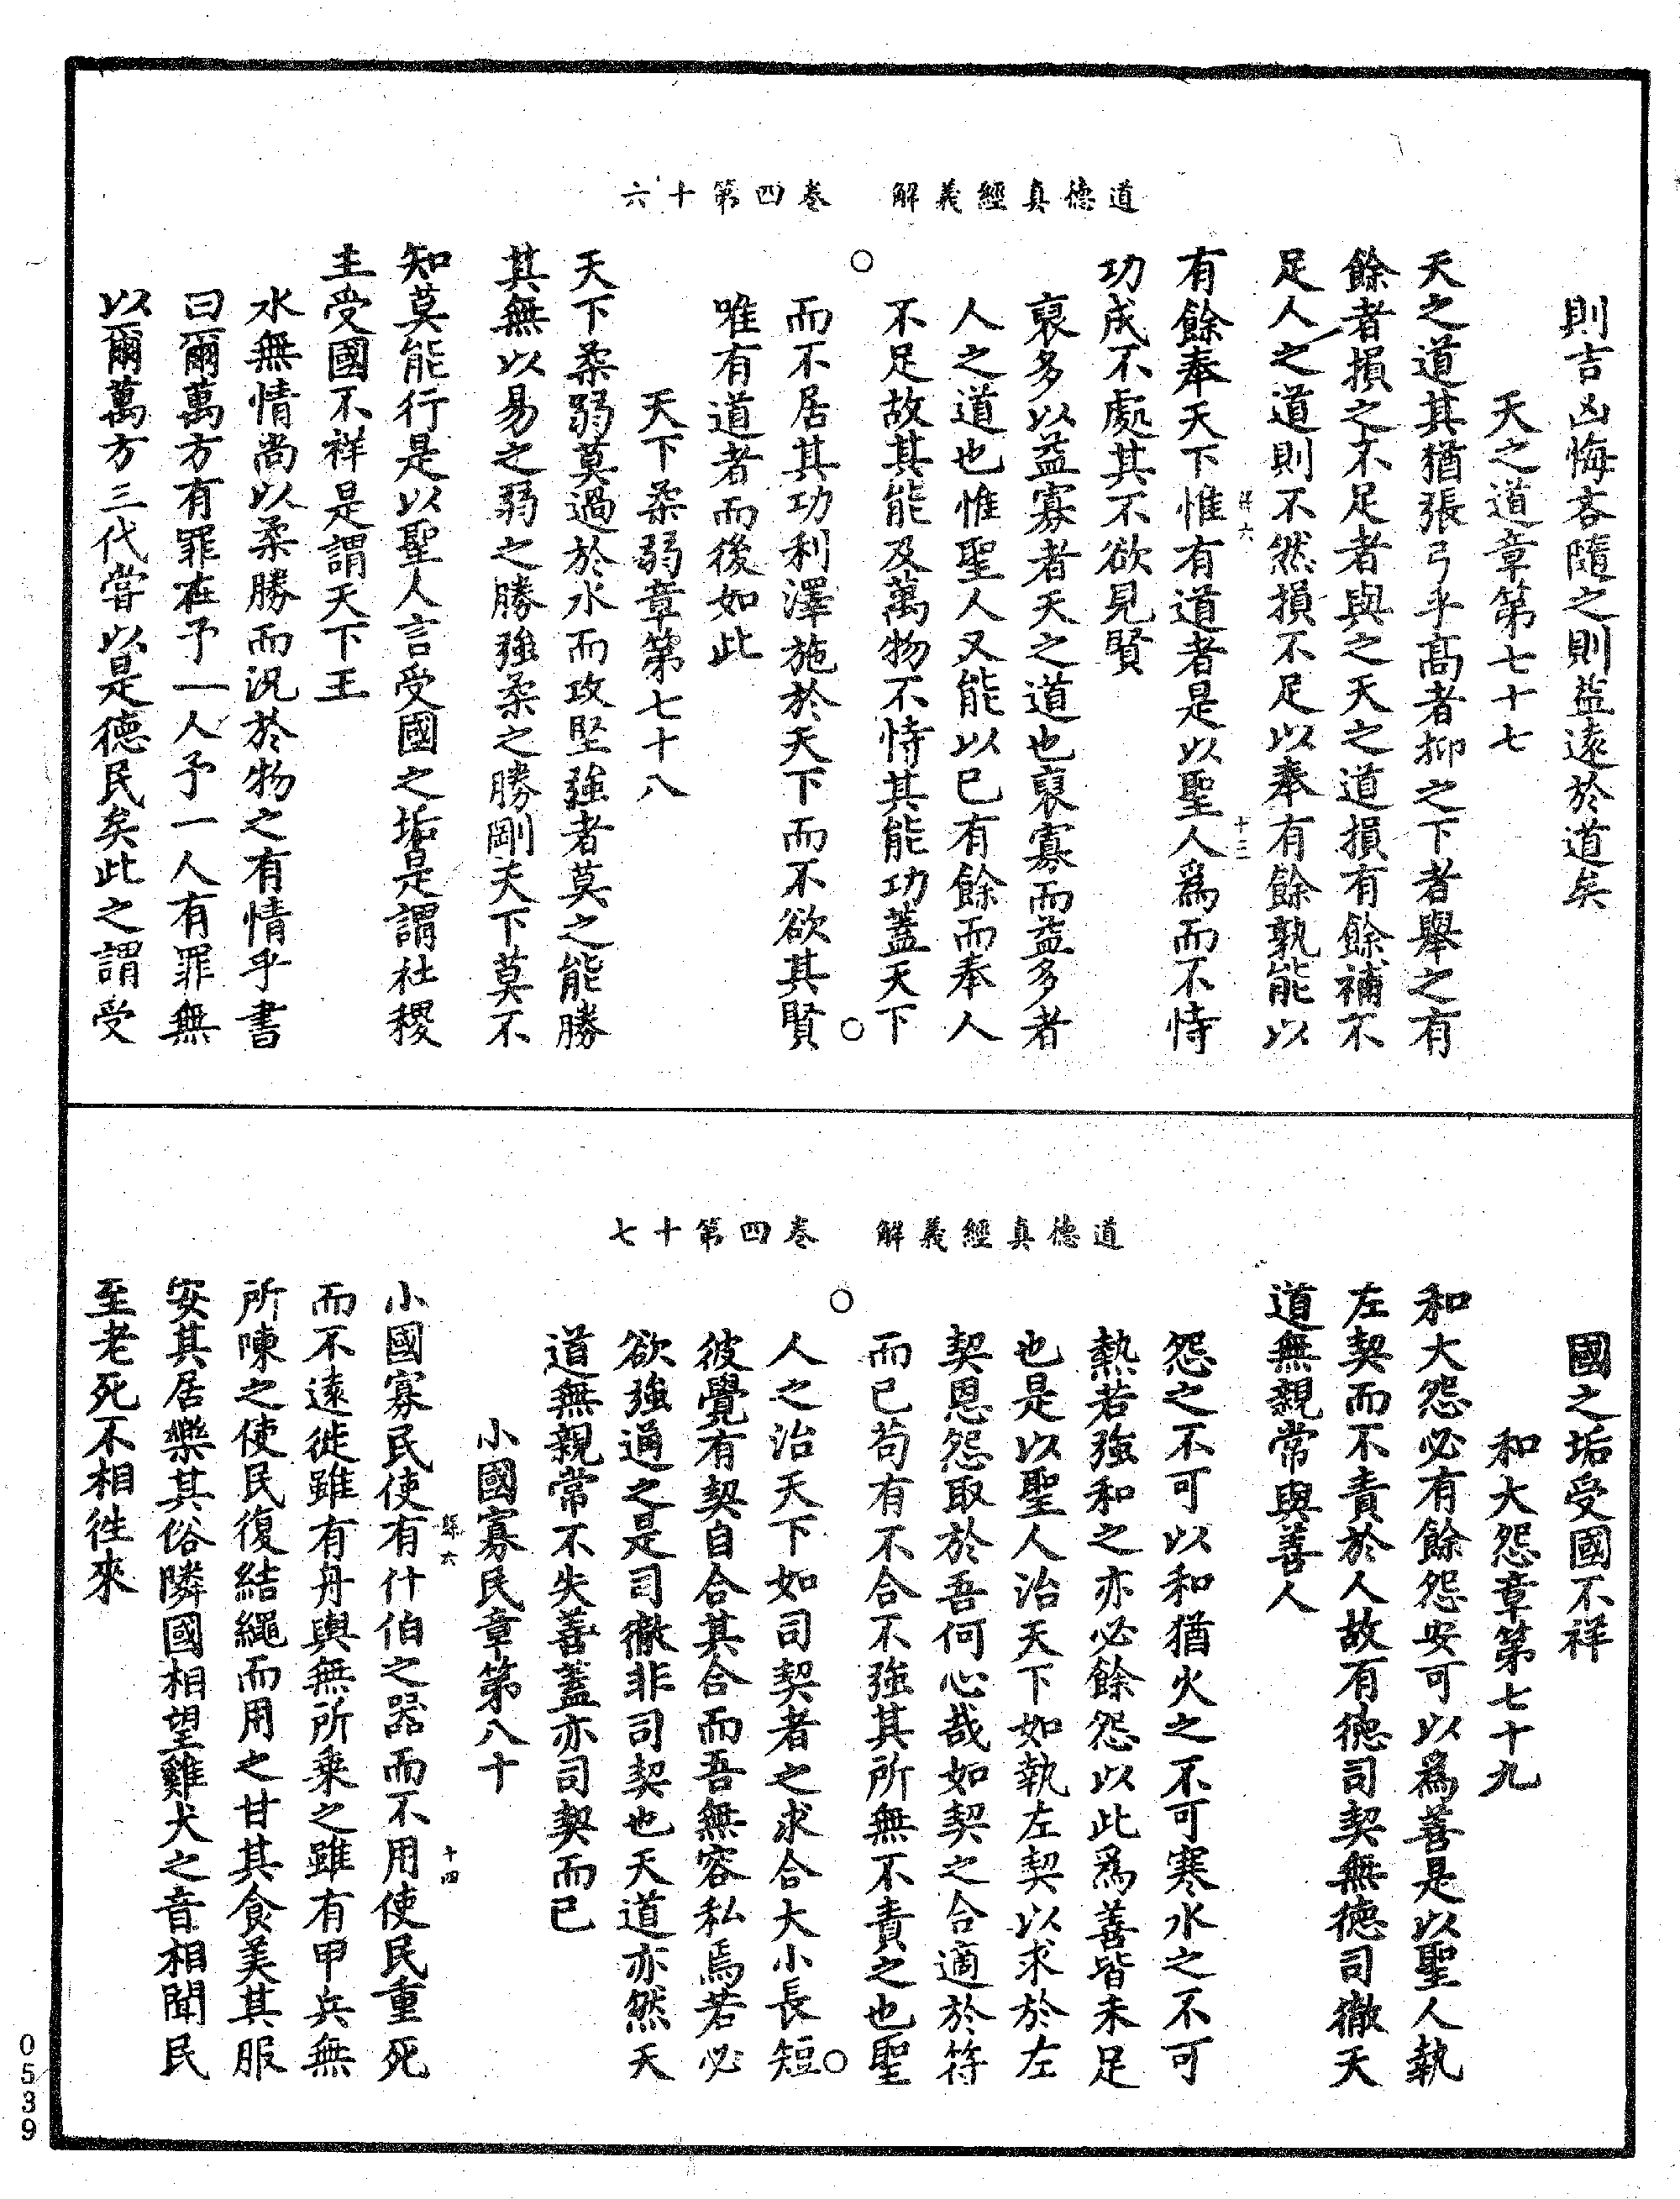 道德真經義解　卷四第十六
則吉凶悔吝隨之則益遠於道矣
天之道章第七十七
天之道其猶張弓乎高者抑之下者舉之有
餘者損之不足者與之天之道損有餘補不
足人之道則不然損不足以奉有餘孰能以
解六　十三
有餘奉天下惟有道者是以聖人為而不恃
功成不處其不欲見賢
裒多以益寡者天之道也裒寡而益多者
人之道也惟聖人又能以已有餘而奉人
不足故其能及萬物不恃其能功蓋天下
而不居其功利澤施於天下而不欲其賢
唯有道者而後如此
天下柔弱章第七十八
天下柔弱莫過於水而攻堅強者莫之能勝
其無以易之弱之勝強柔之勝剛天下莫不
知莫能行是以聖人言受國之垢是謂社稷
主受國不祥是謂天下王
水無情尚以柔勝而況於物之有情乎書
曰爾萬方有罪在予一人予一人有罪無
以爾萬方三代嘗以是德民矣此之謂受
道德真經義解　卷四第十七
國之垢受國不祥
和大怨章第七十九
和大怨必有餘怨安可以為善是以聖人執
左契而不責於人故有德司契無德司徹天
道無親常與善人
怨之不可以和猶火之不可寒水之不可
熱若強和之亦必餘怨以此為善皆未足
也是以聖人治天下如執左契以求於左
契恩怨取於吾何心哉如契之合適於符
而已苟有不合不強其所無不責之也聖
人之治天下如司契者之求合大小長短
彼覺有契自合其合而吾無容私焉若必
欲強通之是司徹非司契也天道亦然天
道無親常不失善蓋亦司契而已
小國寡民章第八十
解六　十四
小國寡民使有什伯之器而不用使民重死
而不遠徙雖有舟輿無所乘之雖有甲兵無
所陳之使民復結繩而用之甘其食美其服
安其居樂其俗隣國相望雞犬之音相聞民
至老死不相往來
0539